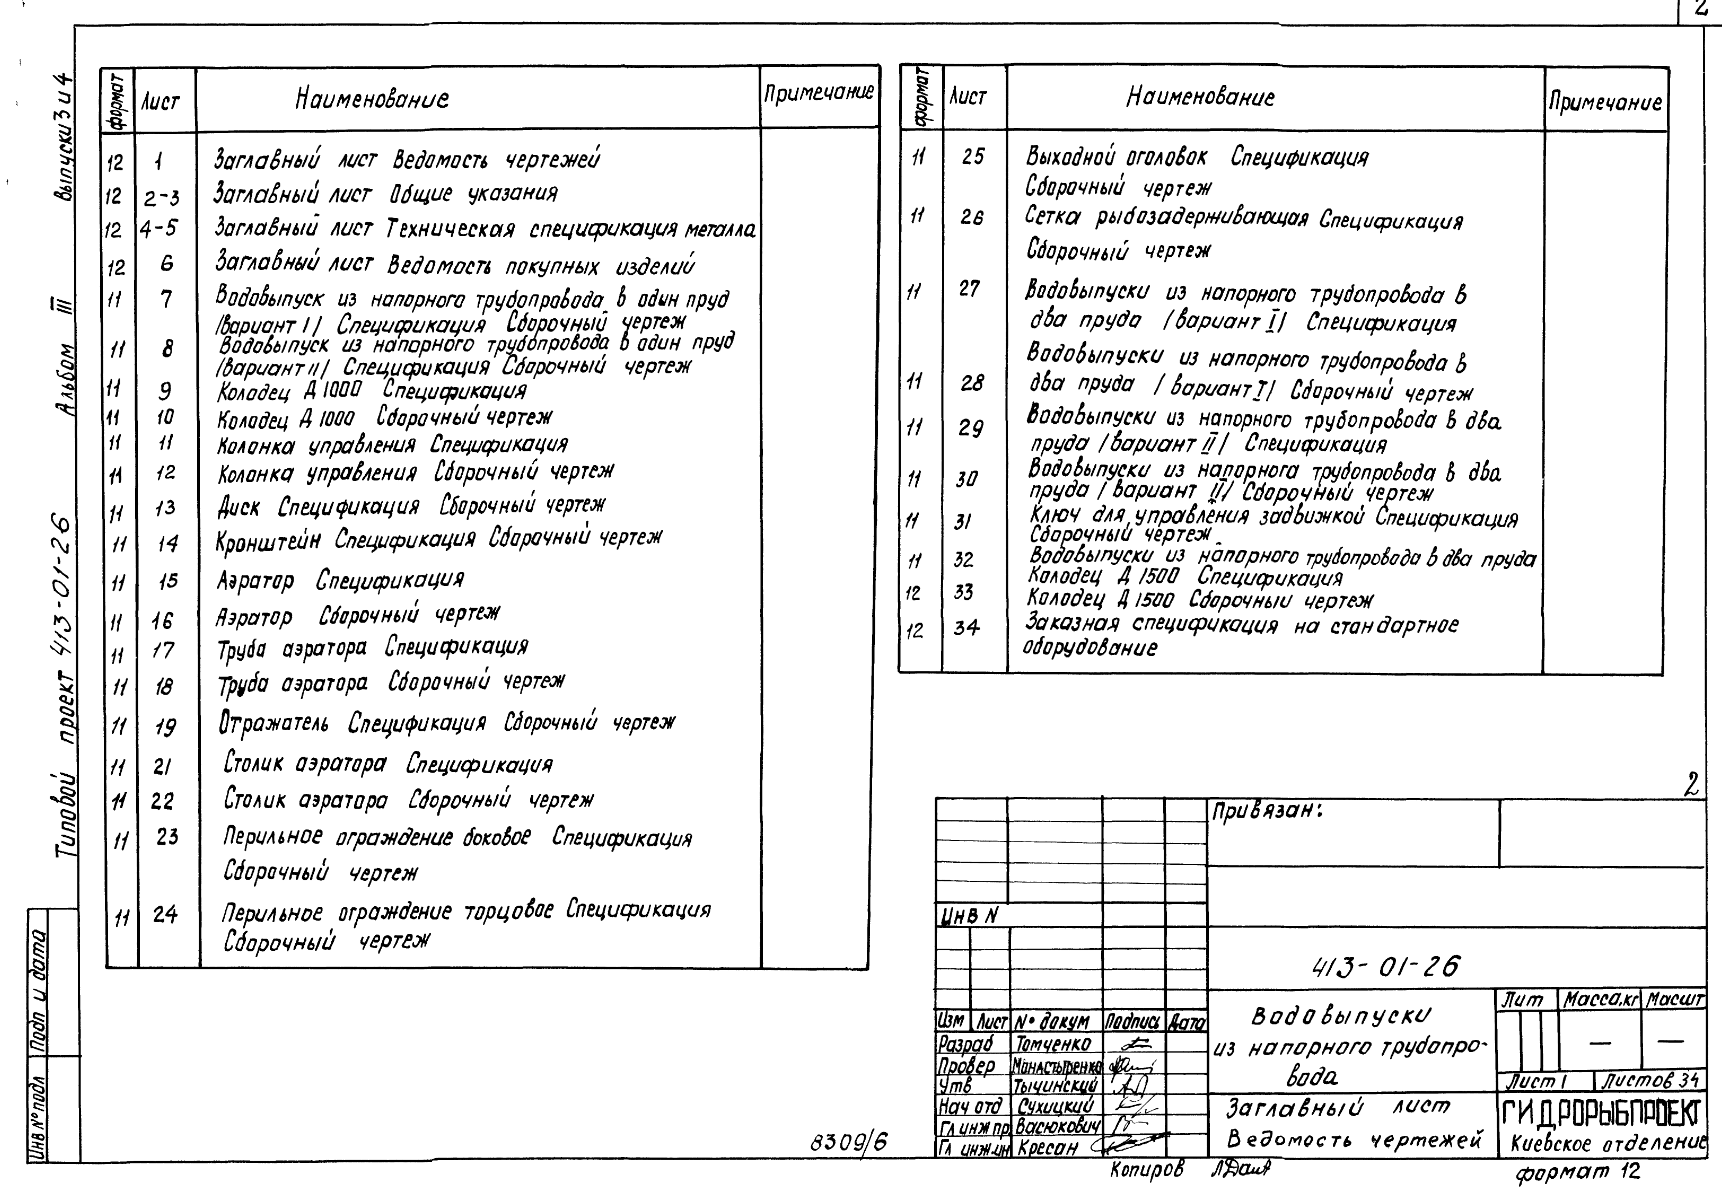 2
Типовой проект 413-01-26 Альбом III Выпуски 3 и 4
формат Лист Наименование Примечание
12 1 Заглавный лист Ведомость чертежей
12 2-3 Заглавный лист Общие указания
12 4-5 Заглавный лист Техническая спецификация металла
12 6 Заглавный лист Ведомость покупных изделий
11 7 Водовыпуск из напорного трубопровода в один пруд
/вариант I/ Спецификация Сборочный чертеж
11 8 Водовыпуск из напорного трубопровода в один пруд
/вариант II/ Спецификация Сборочный чертеж
11 9 Колодец Д 1000 Спецификация
11 10 Колодец Д 1000 Сборочный чертеж
11 11 Колонка управления Спецификация
11 12 Колонка управления Сборочный чертеж
11 13 Диск Спецификация Сборочный чертеж
11 14 Кронштейн Спецификация Сборочный чертеж
11 15 Аэратор Спецификация
11 16 Аэратор Сборочный чертеж
11 17 Труба аэратора Спецификация
11 18 Труба аэратора Сборочный чертеж
11 19 Отражатель Спецификация Сборочный чертеж
11 21 Столик аэратора Спецификация
11 22 Столик аэратора Сборочный чертеж
11 23 Перильное ограждение боковое Спецификация
Сборочный чертеж
11 24 Перильное ограждение торцовое Спецификация
Сборочный чертеж
формат Лист Наименование Примечание
11 25 Выходной оголовок Спецификация
Сборочный чертеж
11 26 Сетка рыбозадерживающая Спецификация
Сборочный чертеж
11 27 Водовыпуски из напорного трубопровода в
два пруда /вариант I/ Спецификация
Водовыпуски из напорного трубопровода в
11 28 два пруда /вариант I/ Сборочный чертеж
11 29 Водовыпуски из напорного трубопровода в два
пруда /вариант II/ Спецификация
11 30 Водовыпуски из напорного трубопровода в два
пруда /вариант II/ Сборочный чертеж
11 31 Ключ для управления задвижкой Спецификация
Сборочный чертеж
11 32 Водовыпуски из напорного трубопровода в два пруда
Колодец Д 1500 Спецификация
12 33 Колодец Д 1500 Сборочный чертеж
12 34 Заказная спецификация на стандартное
оборудование
2
Привязан:
Инв N
413-01-26
Изм Лист N° докум Подпись Дата
Разраб Томченко
Провер Монастыренко
Утв Тычинский
Нач отд Сухицкий
Гл инж пр Васюкович
Гл инж.ин Кресан
Водовыпуски
из напорного трубопро-
вода
Лит Масса,кг Масшт
— —
Лист 1 Листов 34
Заглавный лист
Ведомость чертежей
ГИДРОРЫБПРОЕКТ
Киевское отделение
Инв N° подл Подп и дата
8309/6
Копиров
формат 12